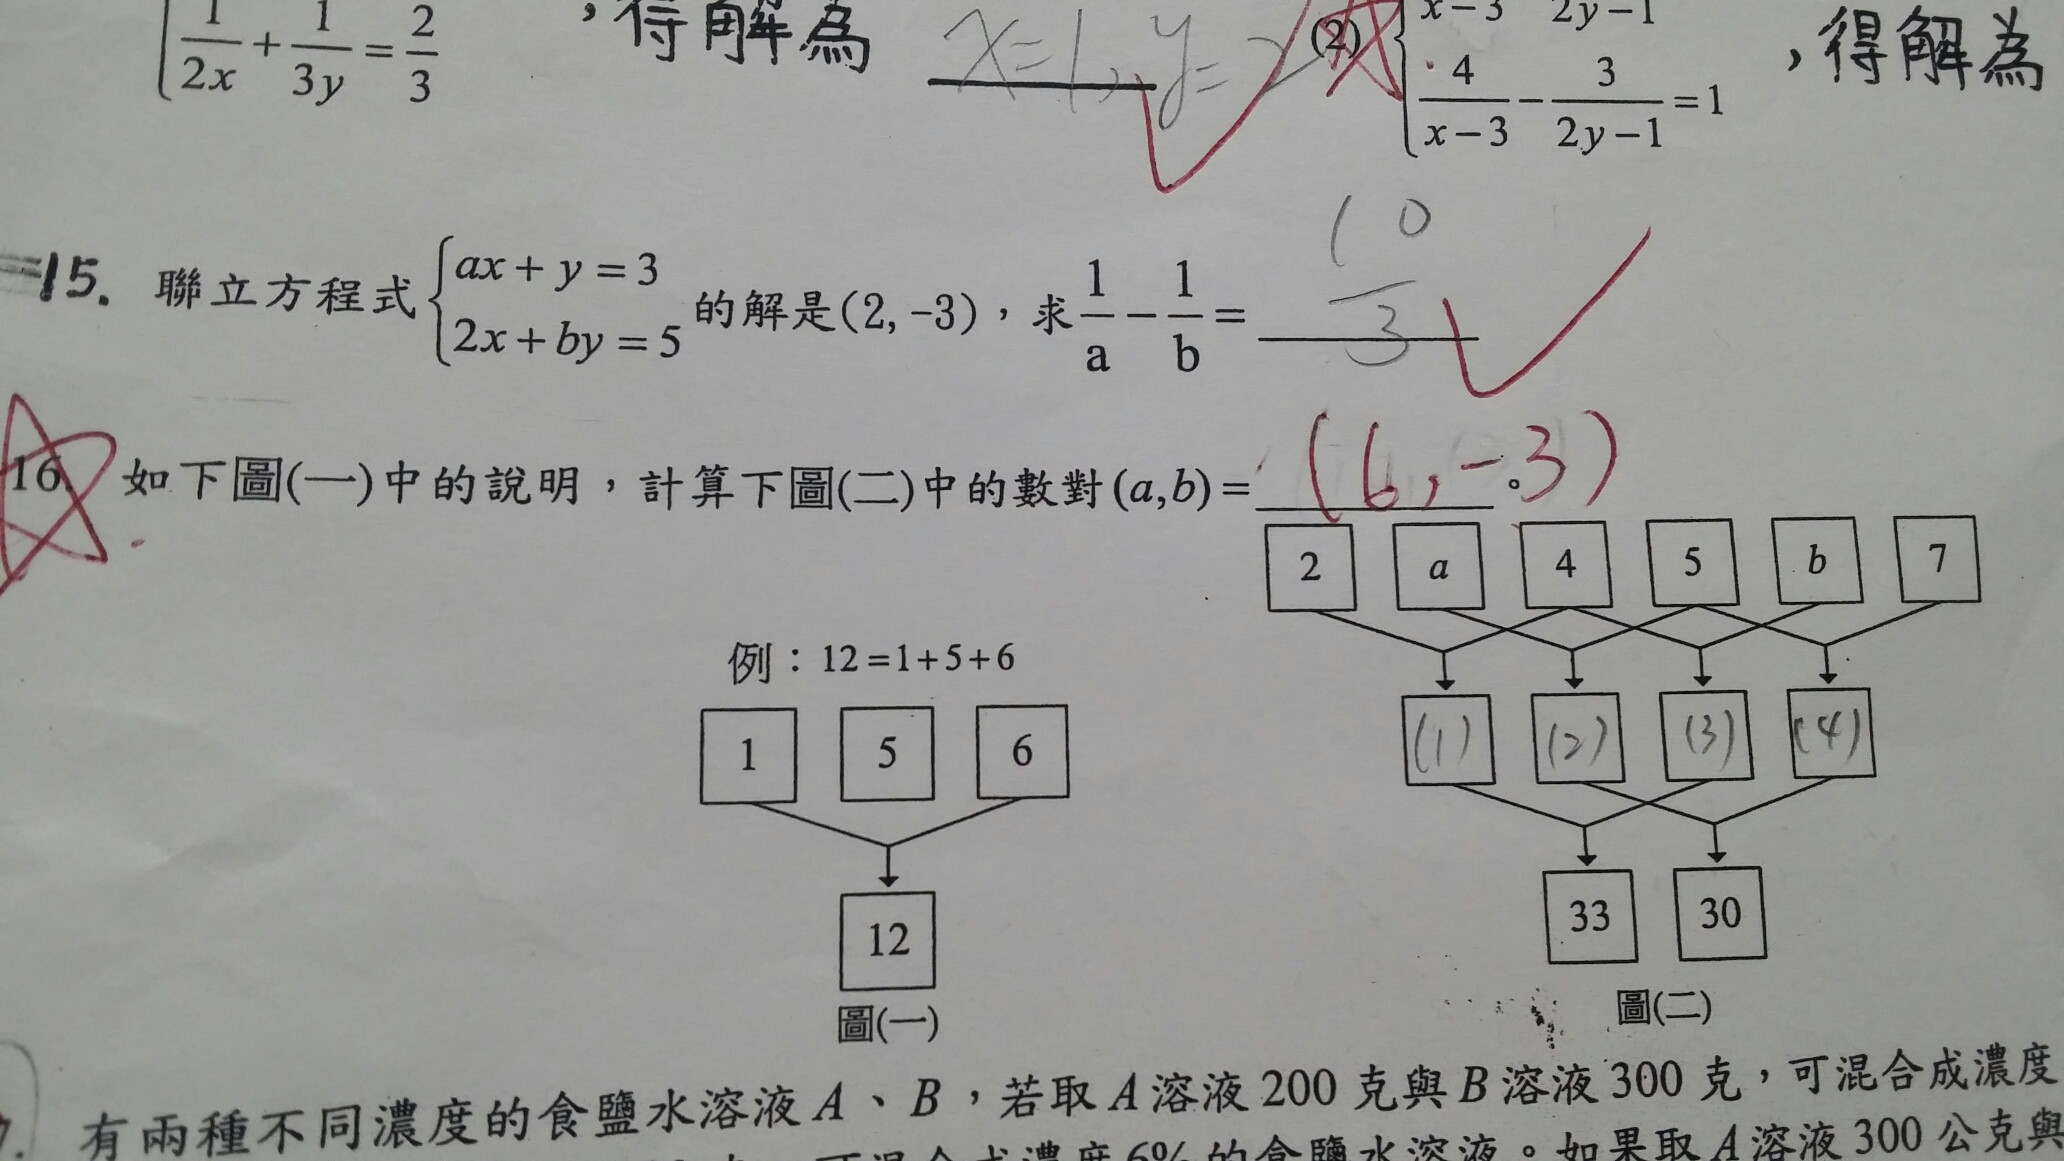 1/2x + 1/3y = 2/3 ，得解為 x=1, y=2 (2) x-3 2y-1
4/x-3 - 3/2y-1 =1 ，得解為
15. 聯立方程式 { ax+y=3 2x+by=5 的解是(2, -3)，求 1/a - 1/b = 10/3
16. 如下圖(一)中的說明，計算下圖(二)中的數對(a,b)= (6, -3) 。
2 a 4 5 b 7
例：12=1+5+6
1 5 6
(1) (2) (3) (4)
12
33 30
圖(一)
圖(二)
有兩種不同濃度的食鹽水溶液A、B，若取A溶液200克與B溶液300克，可混合成濃度
可混合成濃度6%的食鹽水溶液。如果取A溶液300公克與